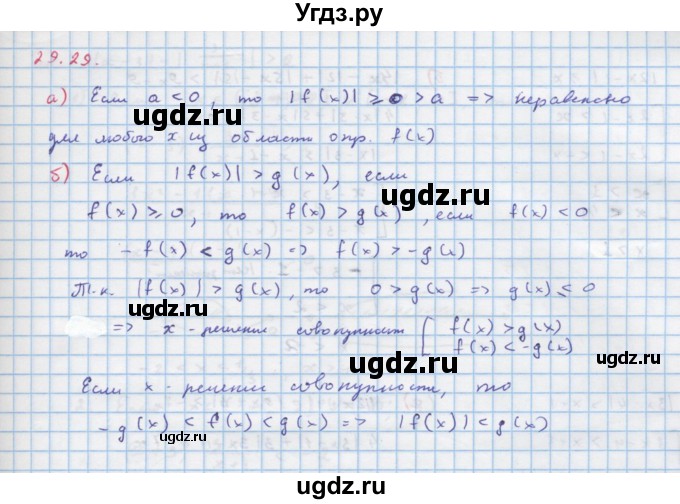 Угдз.ру
29.29.
а) Если a < 0, то |f(x)| ⩾ 0 > a => неравенство
для любого x из области опр. f(x)
б) Если |f(x)| > g(x), если
f(x) ⩾ 0, то f(x) > g(x), если f(x) < 0
то - f(x) < g(x) => f(x) > -g(x)
Т.к. |f(x)| > g(x), то 0 > g(x) => g(x) ⩽ 0
=> x - решение совокупности [ f(x) > g(x)
f(x) < -g(x)
Если x - решение совокупности, то
-g(x) < f(x) < g(x) => |f(x)| < g(x)
ugdz.ru ugdz.ru
ugdz.ru ugdz.ru
ugdz.ru ugdz.ru
ugdz.ru
ugdz.ru
ugdz.ru
ugdz.ru
ugdz.ru